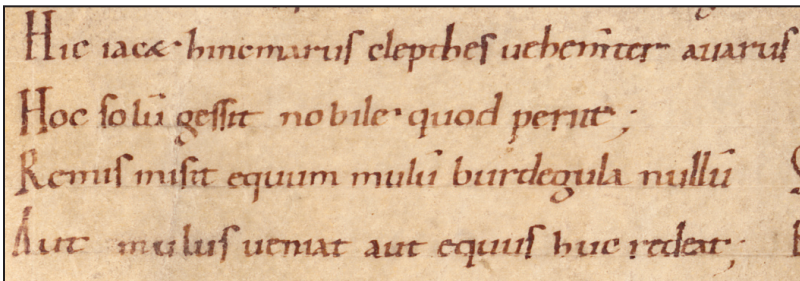 Hic iacæ hincmarus clepthes uehem̄ter auarus
Hoc solū gessit nobile quod periit;
Remis misit equum mulū burdegula nullū
Aut mulus ueniat aut equus huc redeat;